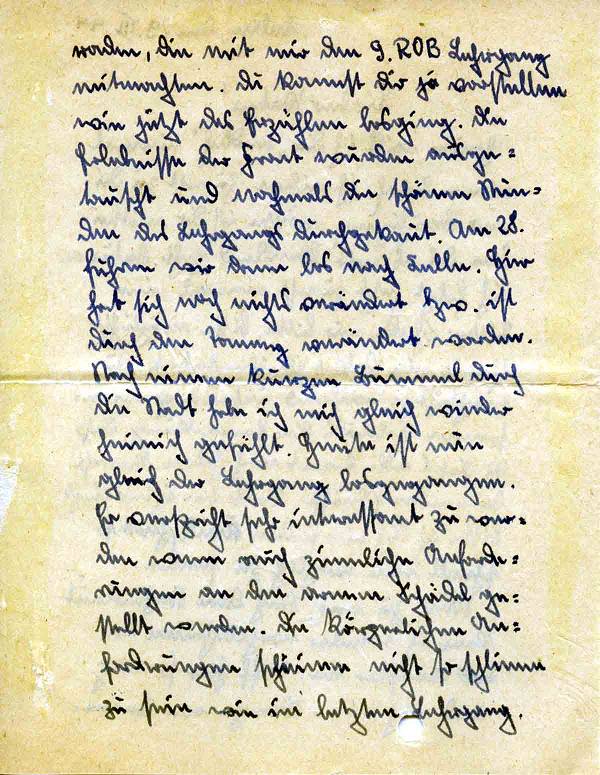 raden, die mit mir den 9. ROB Lehrgang
mitmachten. Du kannst Dir ja vorstellen
wie jetzt das Erzählen losging. Die
Erlebnisse der Front wurden ausge=
tauscht und nochmals die schönen Stun=
den des Lehrgangs durchgekaut. Am 28.
fuhren wir dann los nach Tulln. Hier
hat sich noch nichts verändert bzw. ist
durch den Tommy verändert worden.
Nach einem kurzen Bummel durch
die Stadt habe ich mich gleich wieder
heimisch gefühlt. Heute ist nun
gleich der Lehrgang losgegangen.
Er verspricht sehr interessant zu wer=
den wenn auch ziemliche Anforde=
rungen an den armen Schädel ge=
stellt werden. Die körperlichen An=
forderungen scheinen nicht so schlimm
zu sein wie im letzten Lehrgang.